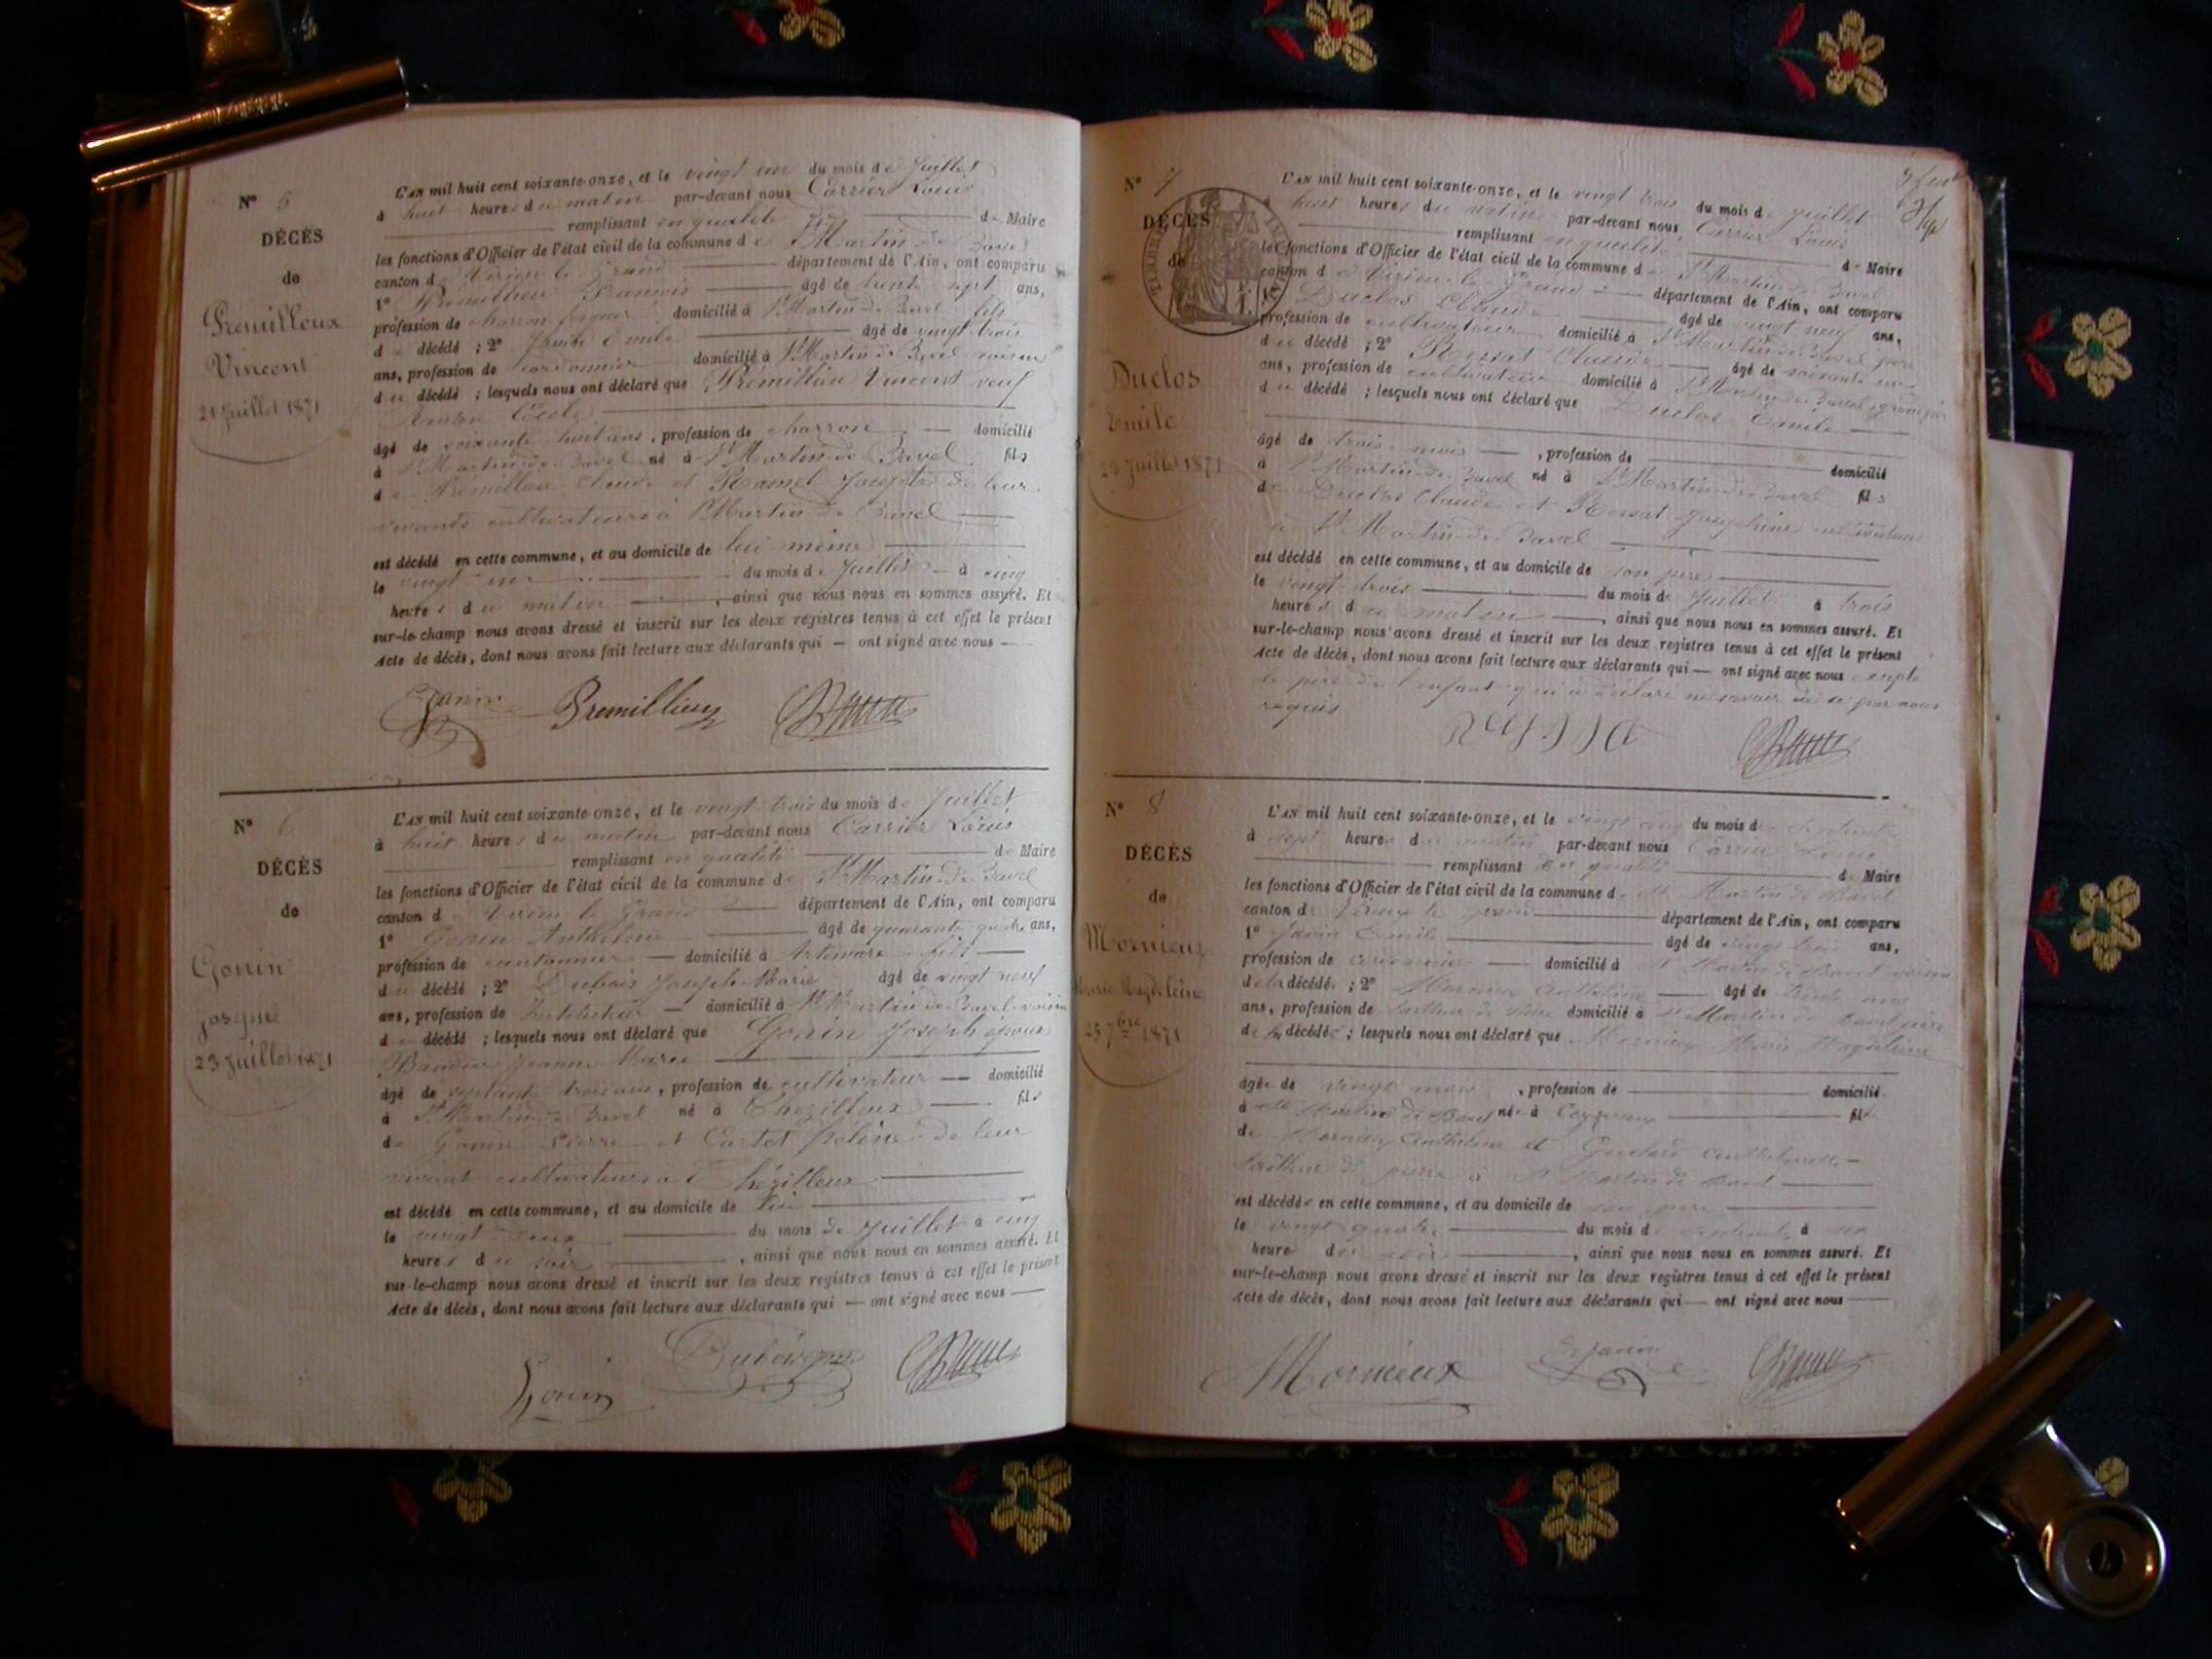 N° 5
DÉCÈS
de
Prémilleux
Vincent
21 Juillet 1871
L'AN mil huit cent soixante-onze, et le vingt un du mois de Juillet
à huit heures du matin par-devant nous Carrier Louis
remplissant en qualité de Maire
les fonctions d'Officier de l'état civil de la commune de St Martin de Bavel
canton de Virieu le Grand département de l'Ain, ont comparu
1° Prémillieu François âgé de trente sept ans,
profession de charron forgeur domicilié à St Martin de Bavel fils
du décédé ; 2° Janin Emile âgé de vingt trois
ans, profession de cordonnier domicilié à St Martin de Bavel voisin
du décédé ; lesquels nous ont déclaré que Prémillieu Vincent veuf
Cécile
âgé de soixante huit ans, profession de charron domicilié
à St Martin de Bavel né à St Martin de Bavel fils
de Prémillieu Claude et Ramel Josephte de leur
vivants cultivateurs à St Martin de Bavel
est décédé en cette commune, et au domicile de lui même
le vingt un du mois de Juillet à cinq
heures du matin, ainsi que nous nous en sommes assuré. Et
sur-le-champ nous avons dressé et inscrit sur les deux registres tenus à cet effet le présent
Acte de décès, dont nous avons fait lecture aux déclarants qui — ont signé avec nous —
Janin Premillieu
N° 6
DÉCÈS
de
Gonin
Joseph
23 Juillet 1871
L'AN mil huit cent soixante-onze, et le vingt trois du mois de Juillet
à huit heures du matin par-devant nous Carrier Louis
remplissant en qualité de Maire
les fonctions d'Officier de l'état civil de la commune de St Martin de Bavel
canton de Virieu le Grand département de l'Ain, ont comparu
1° Gonin Anthelme âgé de quarante quatre ans,
profession de cantonnier — domicilié à Artemare fils —
du décédé ; 2° Dubois Joseph Marie âgé de vingt neuf
ans, profession de Instituteur — domicilié à St Martin de Bavel voisin
du décédé ; lesquels nous ont déclaré que Gonin Joseph époux
Jeanne Marie
âgé de septante trois ans, profession de cultivateur — domicilié
à St Martin de Bavel né à Chézilleux fils
de Gonin Pierre et Cartet Hélène de leur
vivant cultivateurs à Chézilleux
est décédé en cette commune, et au domicile de lui
le vingt deux du mois de Juillet à cinq
heures du soir, ainsi que nous nous en sommes assuré. Et
sur-le-champ nous avons dressé et inscrit sur les deux registres tenus à cet effet le présent
Acte de décès, dont nous avons fait lecture aux déclarants qui — ont signé avec nous —
Gonin
N° 7
DÉCÈS
de
Duclos
Emile
23 Juillet 1871
L'AN mil huit cent soixante-onze, et le vingt trois du mois de Juillet
à huit heures du matin par-devant nous Carrier Louis
remplissant en qualité de Maire
les fonctions d'Officier de l'état civil de la commune de St Martin de Bavel
canton de Virieu le Grand département de l'Ain, ont comparu
1° Duclos Claude âgé de vingt neuf ans,
profession de cultivateur domicilié à St Martin de Bavel père
du décédé ; 2° Rossat Claude âgé de soixante un
ans, profession de cultivateur domicilié à St Martin de Bavel grand père
du décédé ; lesquels nous ont déclaré que Duclos Emile
âgé de trois mois, profession de domicilié
à St Martin de Bavel né à St Martin de Bavel fils
de Duclos Claude et Rossat Josephine cultivateurs
à St Martin de Bavel
est décédé en cette commune, et au domicile de son père
le vingt trois du mois de Juillet à trois
heures du matin, ainsi que nous nous en sommes assuré. Et
sur-le-champ nous avons dressé et inscrit sur les deux registres tenus à cet effet le présent
Acte de décès, dont nous avons fait lecture aux déclarants qui — ont signé avec nous excepté
le père de l'enfant qui a déclaré ne savoir de ce par nous
requis
N° 8
DÉCÈS
de
Mornieux
Marie Magdeleine
25 7bre 1871
L'AN mil huit cent soixante-onze, et le vingt cinq du mois de Septembre
à sept heures du matin par-devant nous Carrier Louis
remplissant en qualité de Maire
les fonctions d'Officier de l'état civil de la commune de St Martin de Bavel
canton de Virieux le grand département de l'Ain, ont comparu
1° Janin Emile âgé de vingt trois ans,
profession de cordonnier — domicilié à St Martin de Bavel voisin
de la décédé. ; 2° Mornieux Anthelme — âgé de trente ans
ans, profession de tailleur de pierre domicilié à St Martin de Bavel père
de la décédée ; lesquels nous ont déclaré que Mornieux Marie Magdeleine
âgée de vingt mois, profession de domicilié
à St Martin de Bavel née à Ceyzérieux fille
de Mornieux Anthelme et Anthelmette —
tailleur de pierre à St Martin de Bavel
est décédée en cette commune, et au domicile de son père
le vingt quatre du mois de Septembre à une
heure du soir, ainsi que nous nous en sommes assuré. Et
sur-le-champ nous avons dressé et inscrit sur les deux registres tenus à cet effet le présent
Acte de décès, dont nous avons fait lecture aux déclarants qui — ont signé avec nous —
Mornieux E. Janin